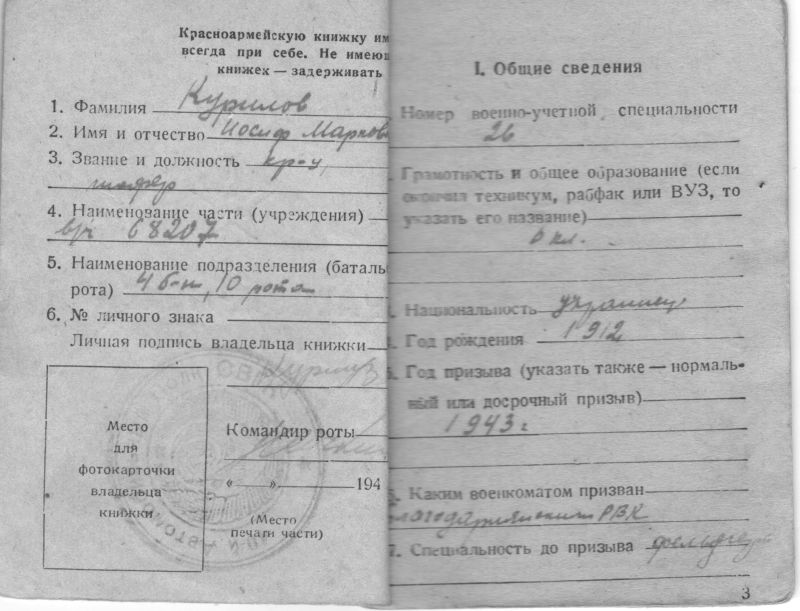 Красноармейскую книжку им
всегда при себе. Не имею
книжек — задерживать
1. Фамилия Курилов
2. Имя и отчество Иосиф Маркови
3. Звание и должность кр-ц,
шофер
4. Наименование части (учреждения)
в/ч 68207
5. Наименование подразделения (баталь
рота) 4 б-н, 10 рота
6. № личного знака
Личная подпись владельца книжки
Место
для
фотокарточки
владельца
книжки
Командир роты
« » 194
(Место
печати части)
I. Общие сведения
Номер военно-учетной специальности
26
Грамотность и общее образование (если
окончил техникум, рабфак или ВУЗ, то
указать его название)
6 кл.
Национальность украинец
Год рождения 1912
Год призыва (указать также — нормаль-
ный или досрочный призыв)
1943 г
Каким военкоматом призван
РВК
7. Специальность до призыва
3